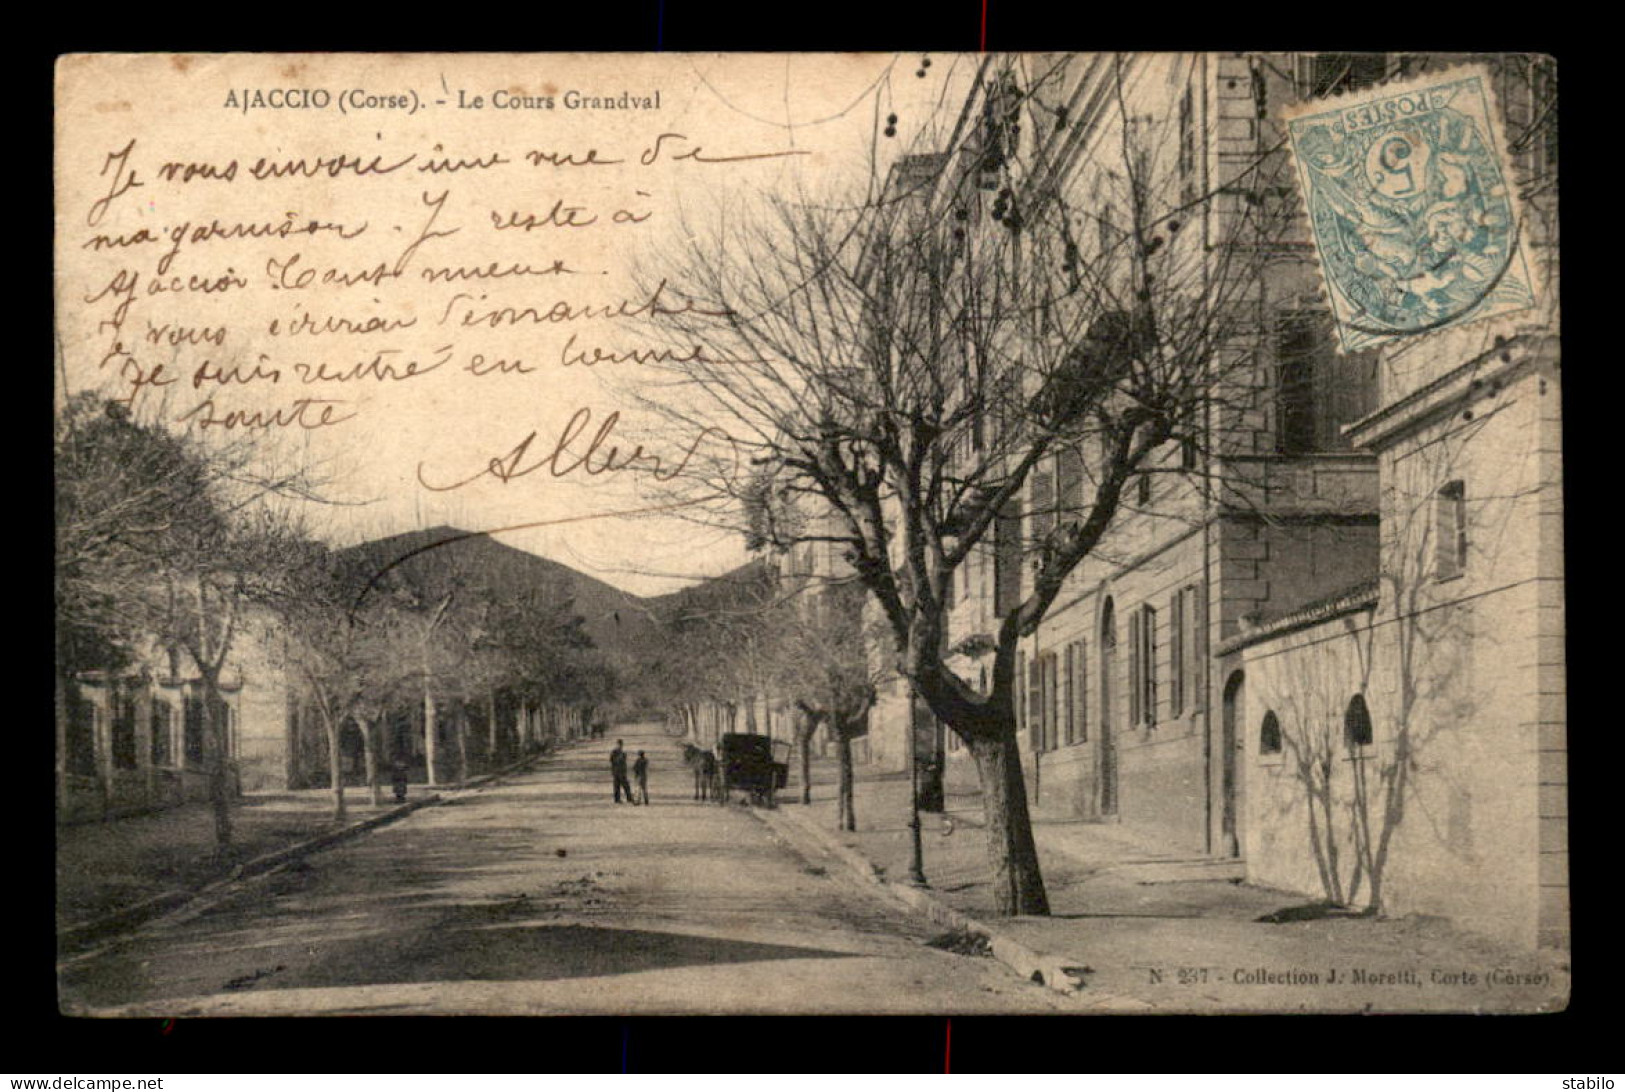 AJACCIO (Corse). - Le Cours Grandval
Je vous envoie une vue de
ma garnison. Je reste à
Ajaccio tant mieux.
Je vous écrirai dimanche
Je suis rentré en bonne
sante
POSTES
5
N 237 - Collection J. Moretti, Corte (Corse)
delcampe.net
stabilo